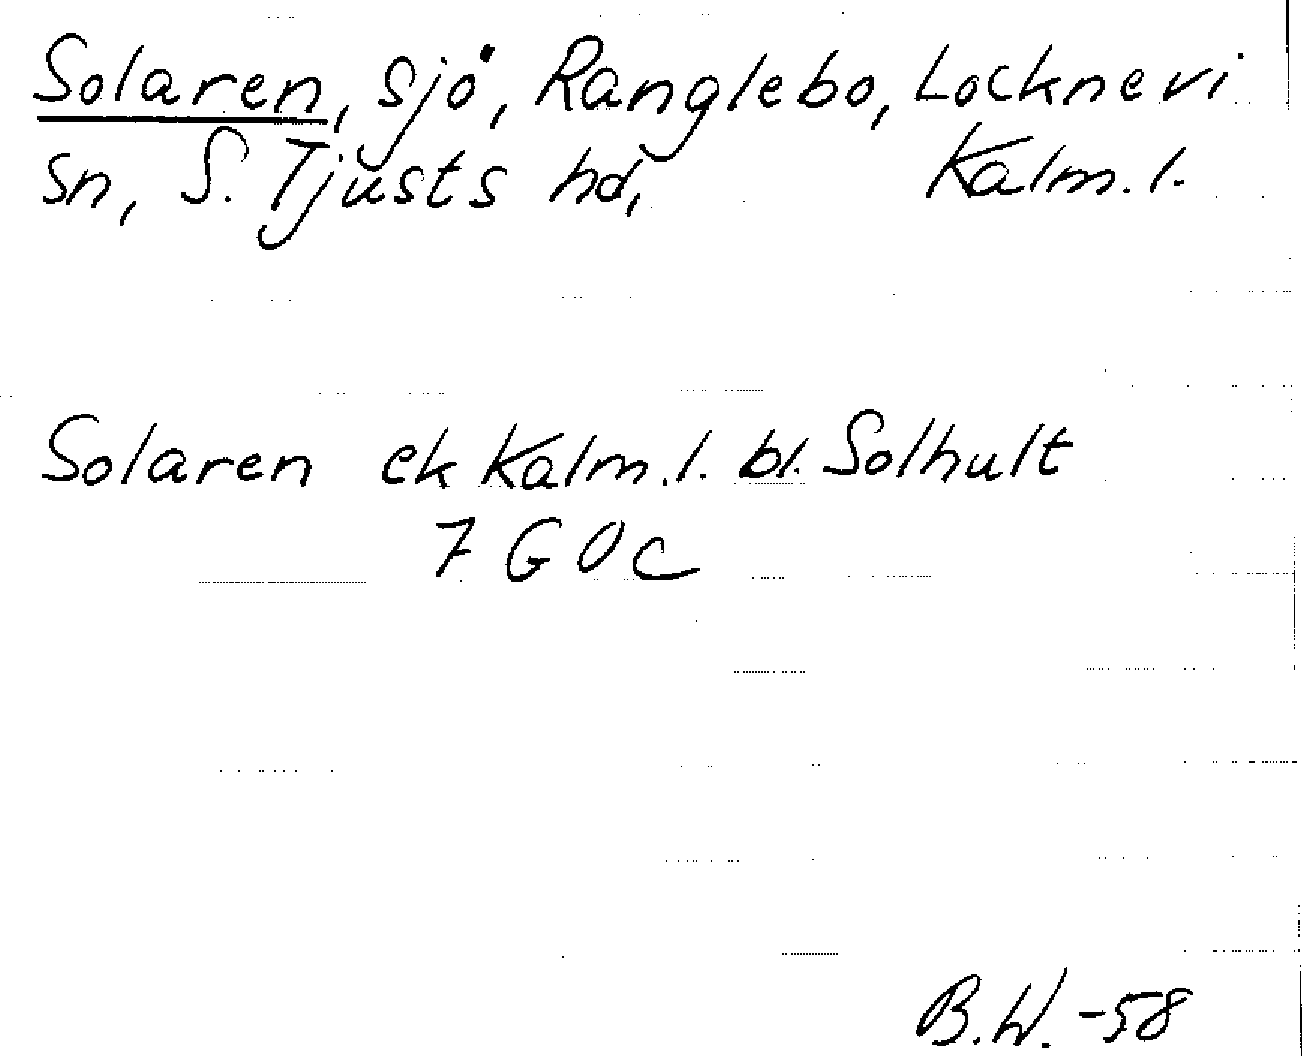 Solaren, sjö, Ranglebo, Locknevi
sn, S. Tjusts hd, Kalm. l.
Solaren ek Kalm. l. bl. Solhult
7 G 0 c
B.W. -58